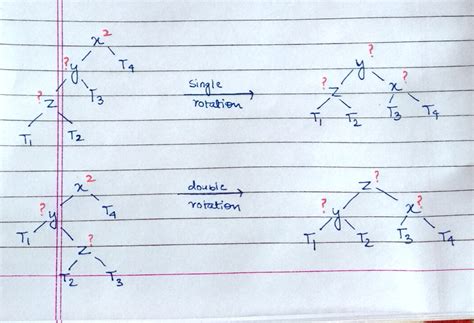 x 2
? y T4
? z T3
T1 T2
single
rotation
y ?
? z x ?
T1 T2 T3 T4
x 2
? y T4
T1 z ?
T2 T3
double
rotation
z ?
? y x ?
T1 T2 T3 T4